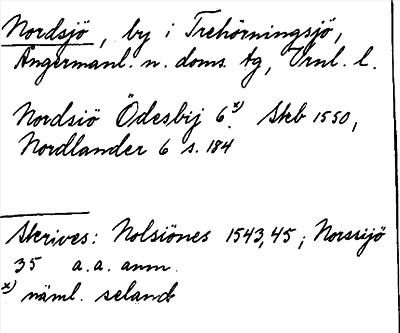 Nordsjö, by i Trehörningsjö,
Ångermanl. n. doms. tg, Örnl. l.
Nordsiö Ödesbij 6 x). Skb 1550,
Nordlander 6 s. 184
Skrives: Nolsiönes 1543,45; Norssijö
35 a.a. anm.
x) näml. seland